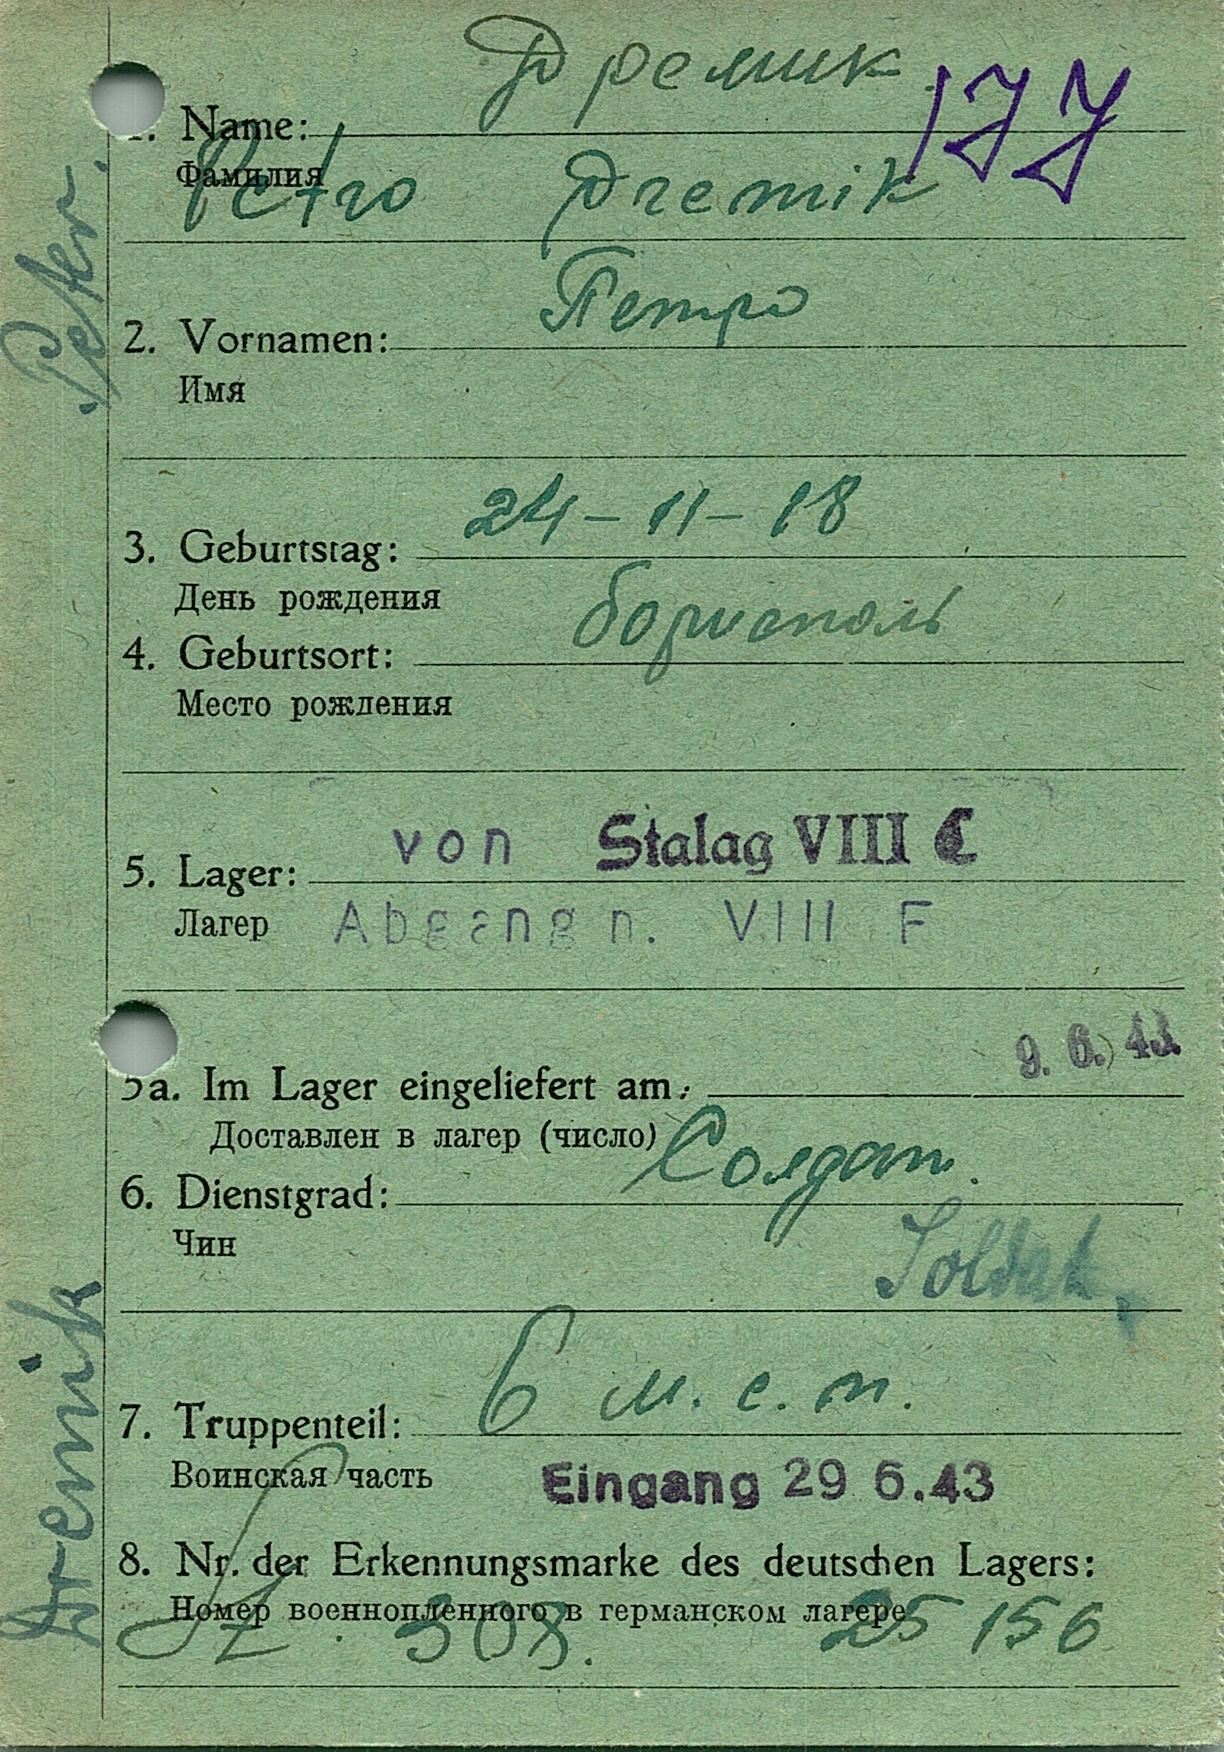 Дремик
177
1. Name:
Фамилия
Petro Dremik
Петро
2. Vornamen:
Имя
24-11-18
3. Geburtstag:
День рождения
бориспoль
4. Geburtsort:
Место рождения
von Stalag VIII C
5. Lager:
Лагер
Abgang n. VIII F
9. 6. 43.
5a. Im Lager eingeliefert am:
Доставлен в лагер (число)
Солдат.
6. Dienstgrad:
Чин
Soldat.
6 м. с. п.
7. Truppenteil:
Воинская часть
Eingang 29 6.43
8. Nr. der Erkennungsmarke des deutschen Lagers:
Номер военнопленного в германском лагере
St. 308. 25 156
Dremik
Peter.